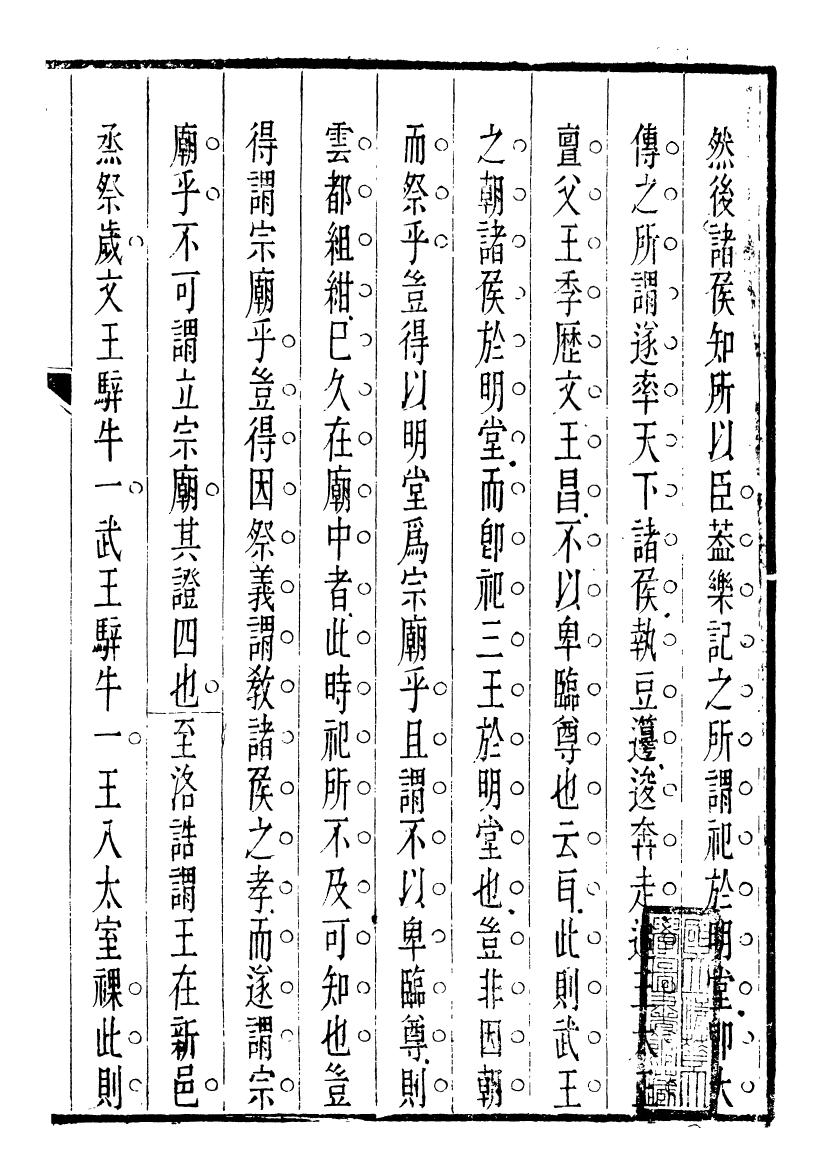 然後諸侯知所以臣葢樂記之所謂祀於明堂卽大
傳之所謂遂率天下諸侯執豆籩逡奔走追王大王
亶父王季歷文王昌不以卑臨尊也云耳此則武王
之朝諸侯於明堂而卽祀三王於明堂也豈非因朝
而祭乎豈得以明堂爲宗廟乎且謂不以卑臨尊則
雲都組紺已久在廟中者此時祀所不及可知也豈
得謂宗廟乎豈得因祭義謂教諸侯之孝而遂謂宗
廟乎不可謂立宗廟其證四也至洛誥謂王在新邑
烝祭歲文王騂牛一武王騂牛一王入太室祼此則